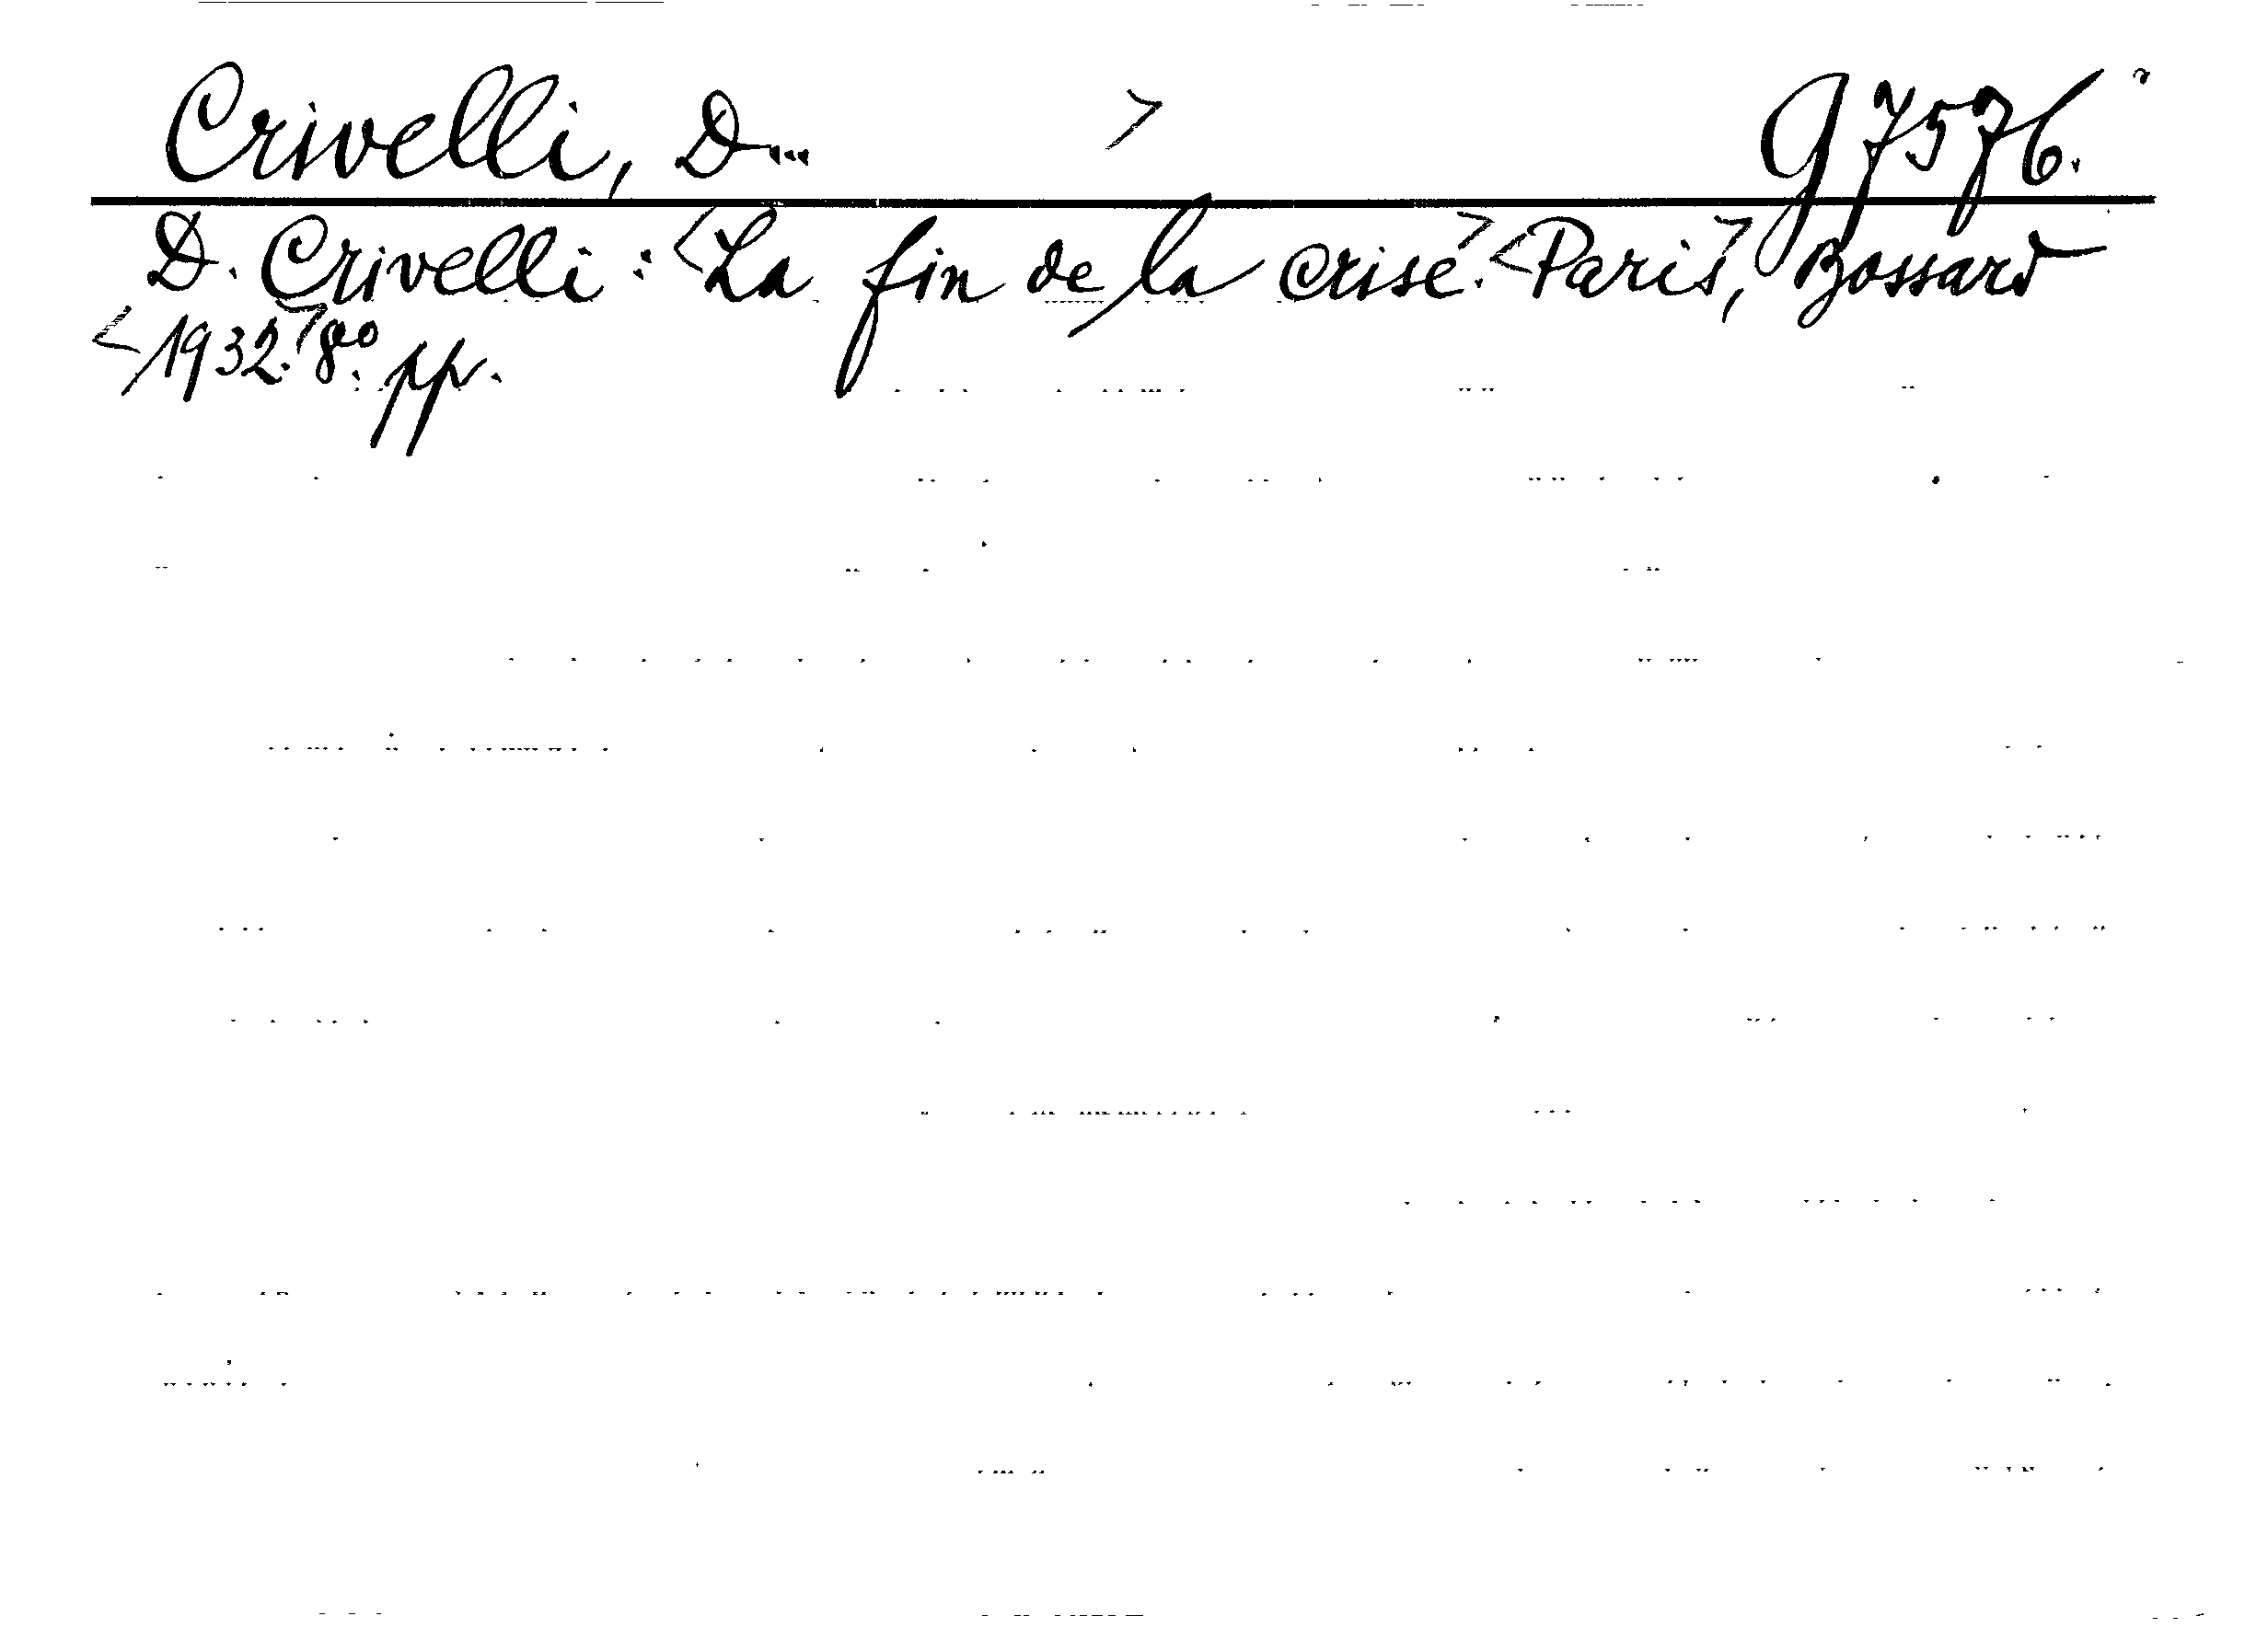 Crivelli, D... > g 7576.
D. Crivelli: <La fin de la crise.> <Paris>, Bossard
<1932.> 8°. pp.